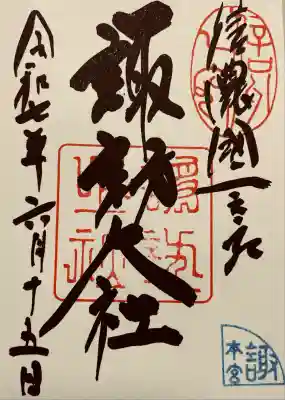 信濃國一之宮
諏訪大社
令和七年六月十五日
諏訪大社
本宮
諏